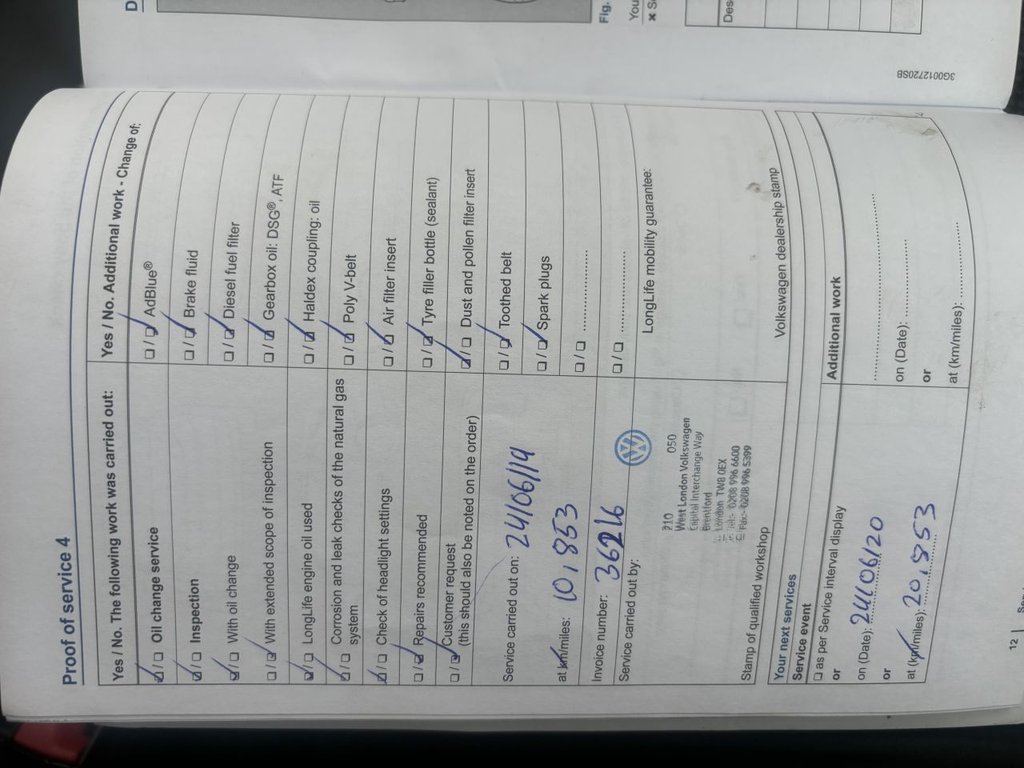 Proof of service 4
Yes / No. The following work was carried out:
☑/☐ Oil change service
☑/☐ Inspection
☑/☐ With oil change
☐/☑ With extended scope of inspection
☑/☐ LongLife engine oil used
☑/☐ Corrosion and leak checks of the natural gas
system
☑/☐ Check of headlight settings
☐/☑ Repairs recommended
☐/☑ Customer request
(this should also be noted on the order)
Yes / No. Additional work - Change of:
☐/☑ AdBlue®
☐/☑ Brake fluid
☐/☑ Diesel fuel filter
☐/☑ Gearbox oil: DSG®, ATF
☐/☑ Haldex coupling: oil
☐/☑ Poly V-belt
☐/☑ Air filter insert
☐/☑ Tyre filler bottle (sealant)
☑/☐ Dust and pollen filter insert
☐/☑ Toothed belt
☐/☑ Spark plugs
☐/☐ ....................
☐/☐ ....................
Service carried out on: 24/06/19
at km/miles: 10,853
Invoice number: 36216
Service carried out by:
LongLife mobility guarantee:
210 050
West London Volkswagen
Capital Interchange Way
Brentford
London TW8 0EX
Tel:- 0208 996 6600
Fax:- 0208 996 5399
Stamp of qualified workshop
Volkswagen dealership stamp
Your next services
Service event
☐ as per Service interval display
or
on (Date): 24/06/20
or
at (km/miles): 20,853
Additional work
....................
on (Date): ....................
or
at (km/miles): ....................
12
3G0012720SB
Fig.
You
Des